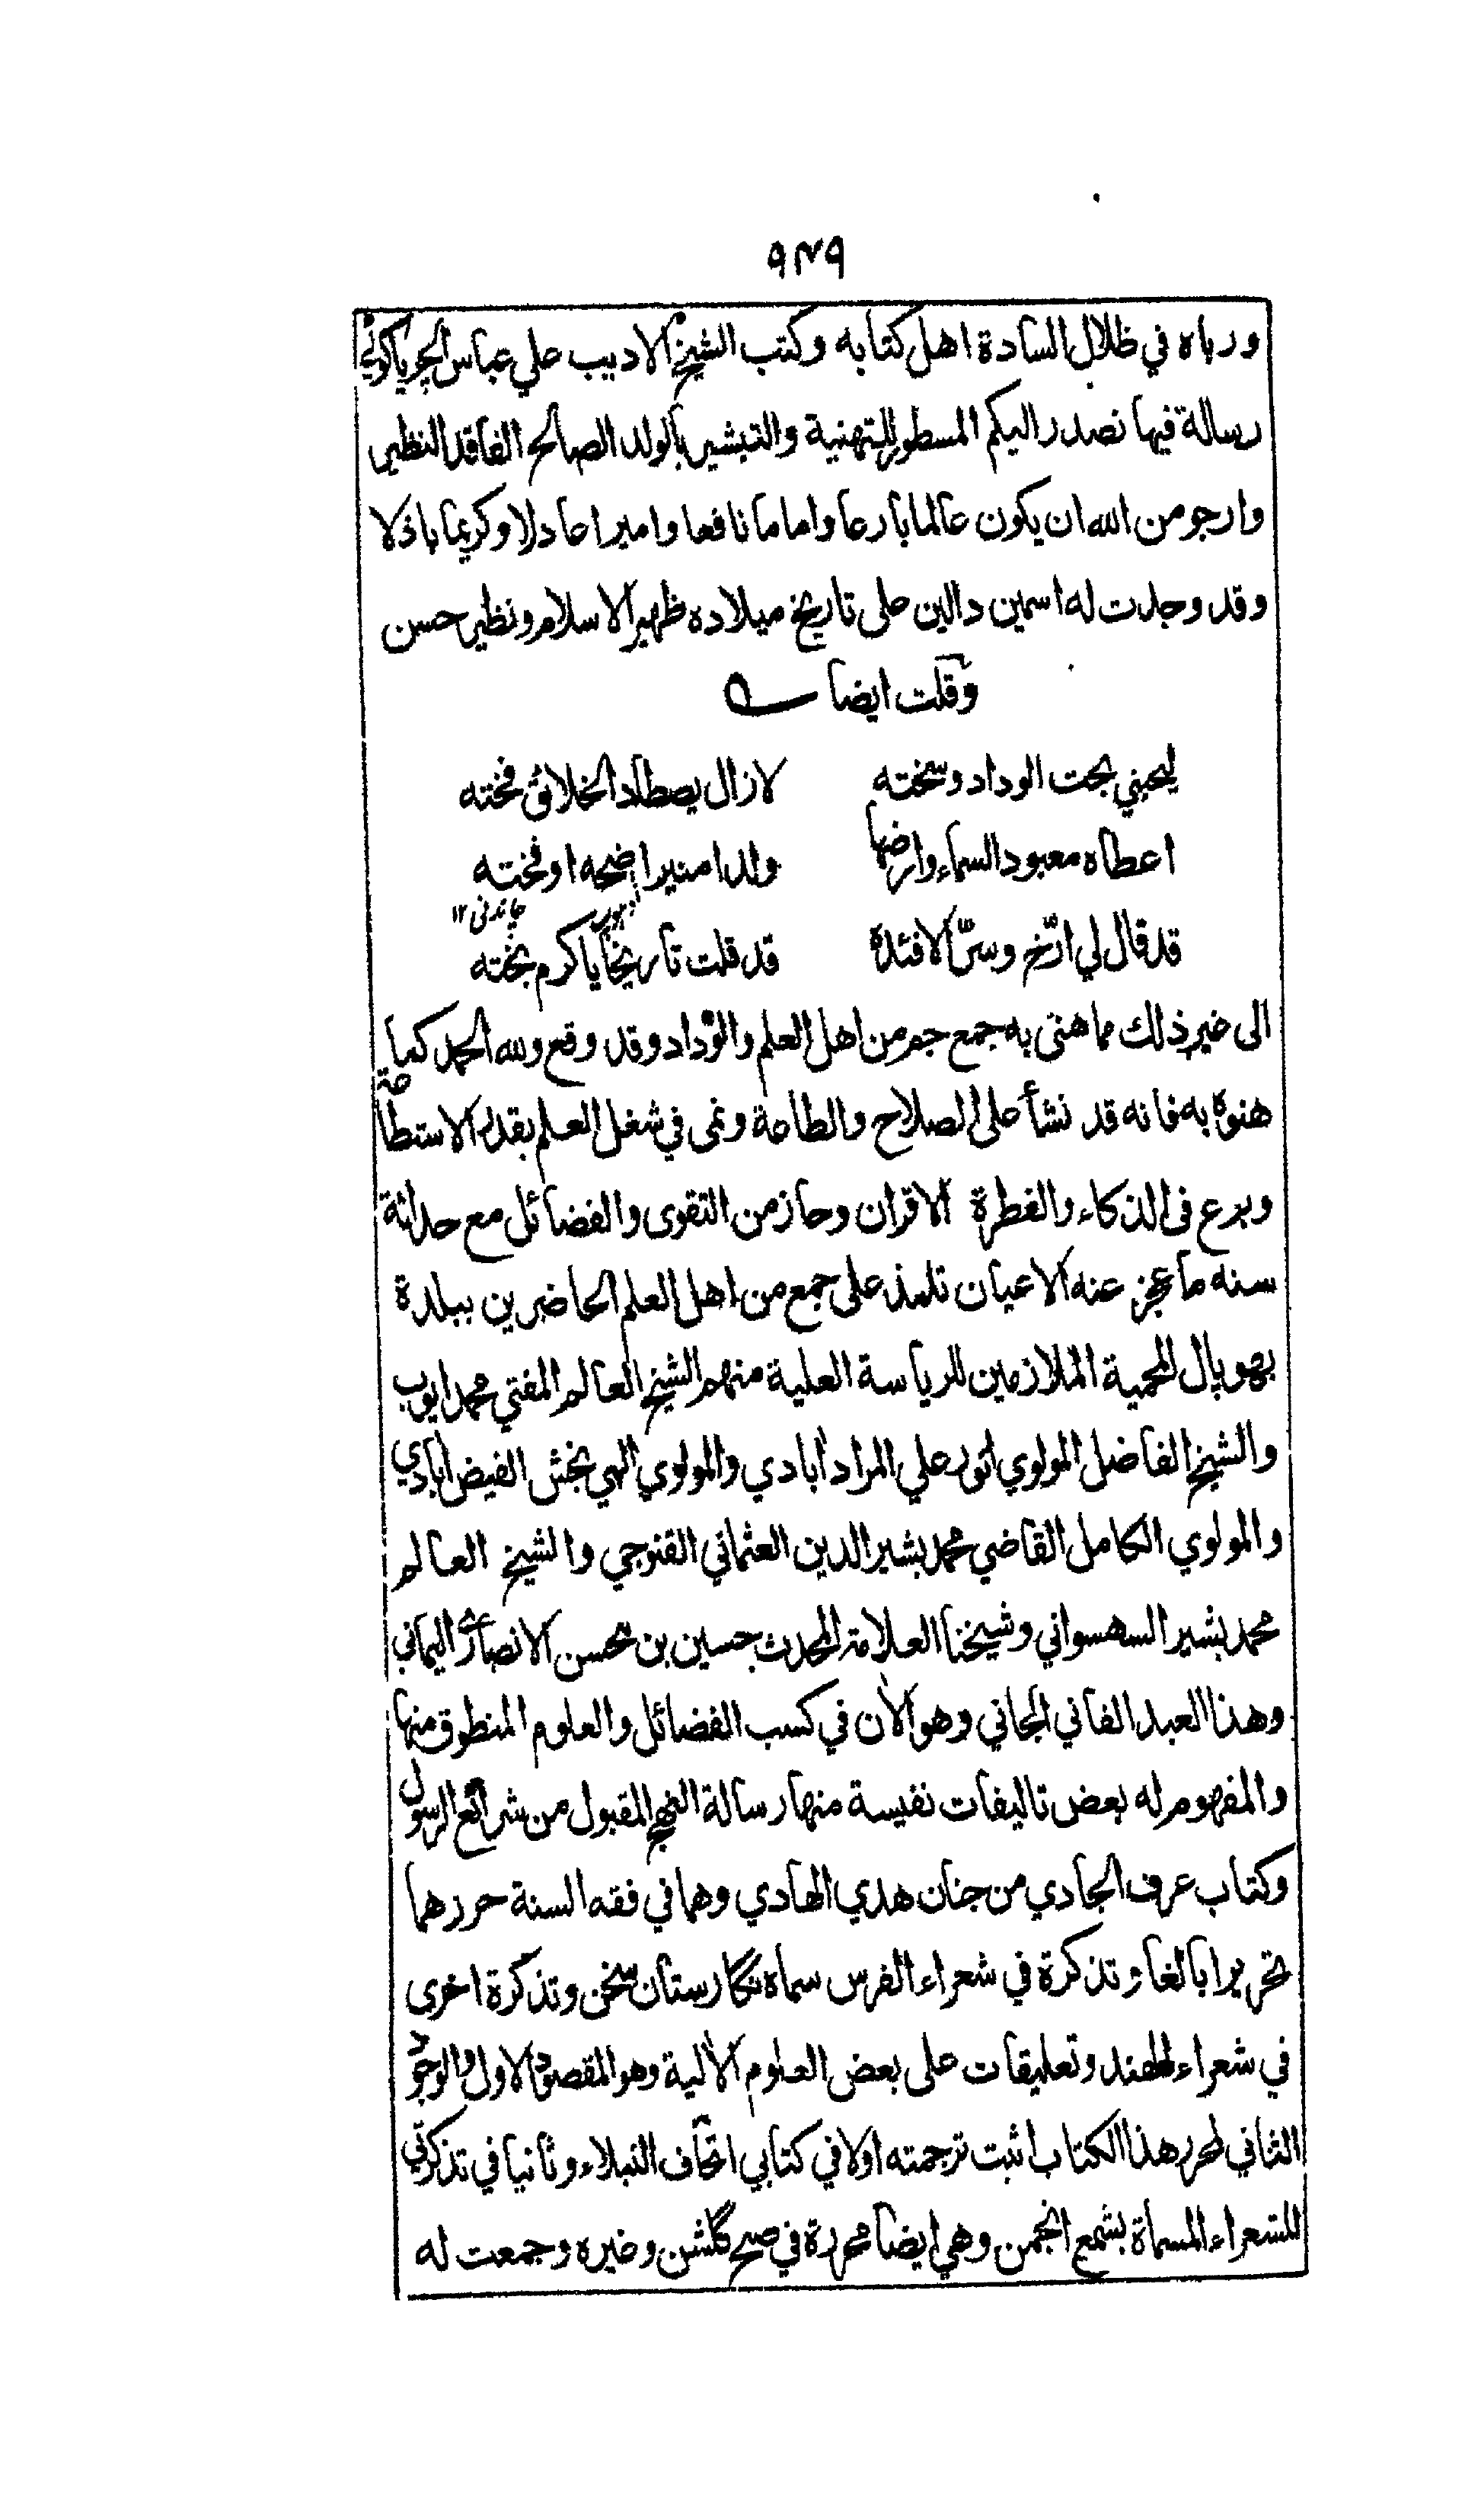 ٩٤٩
ورباه في ظلال السادة اهل كتابه وكتب الشيخ الاديب علي عباس الچرياكوٹي
رسالة فيها نصدر اليكم المسطور للتهنية والتبشير بالولد الصالح الفاقد النظير
وارجو من الله ان يكون عالما بارعا واماما نافعا واميرا عادلا وكريما باذلا
وقد وجدت له اسمين دالين على تاريخ ميلاده ظهير الاسلام ونظير حسن
وقلت ايضا
ليحبني بحت الوداد وسخته لازال يصطاد الخلائق فخته
اعطاه معبود السماء وارضها ولدا منيرا ضحه او فخته
چاندني ١٢
قد قال لي ارّخ وسرّ الافئدة قد قلت تاريخا ياكرم بخته
الى غير ذلك مما هنى به جمع جم من اهل العلم والوداد وقد وقع ولله الحمد كما
هنوه به فانه قد نشأ على الصلاح والطاعة ونمى في شغل العلم بقدر الاستطاعة
وبرع فى الذكاء والفطرة الاقران وحاز من التقوى والفضائل مع حداثة
سنه ما عجز عنه الاعيان تلمذ على جمع من اهل العلم الحاضرين ببلدة
بهوپال المحمية الملازمين للرياسة العلية منهم الشيخ العالم المفتي محمد ايوب
والشيخ الفاضل المولوي انور علي المراد ابادي والمولوي الهي بخش الفيض ابادي
والمولوي الكامل القاضي محمد بشير الدين العثماني القنوجي والشيخ العالم
محمد بشير السهسواني وشيخنا العلامة المحدث حسين بن محسن الانصاري اليماني
وهذا العبد الفاني الجاني وهو الآن في كسب الفضائل والعلوم المنطوق منها
والمفهوم له بعض تاليفات نفيسة منها رسالة النهج المقبول من شرائع الرسول
وكتاب عرف الجادي من جنان هدي الهادي وهما في فقه السنة حررهما
تحريرا بالغا وتذكرة في شعراء الفرس سماه نگارستان سخن وتذكرة اخرى
في شعراء الهند وتعليقات على بعض العلوم الآلية وهو المقصود الاول والوجود
الثاني لمحرر هذا الكتاب اثبت ترجمته اولا في كتابي اتحاف النبلاء وثانيا في تذكرتي
للشعراء المسماة بشمع انجمن وهي ايضا محررة في صبح گلشن وغيره وجمعت له